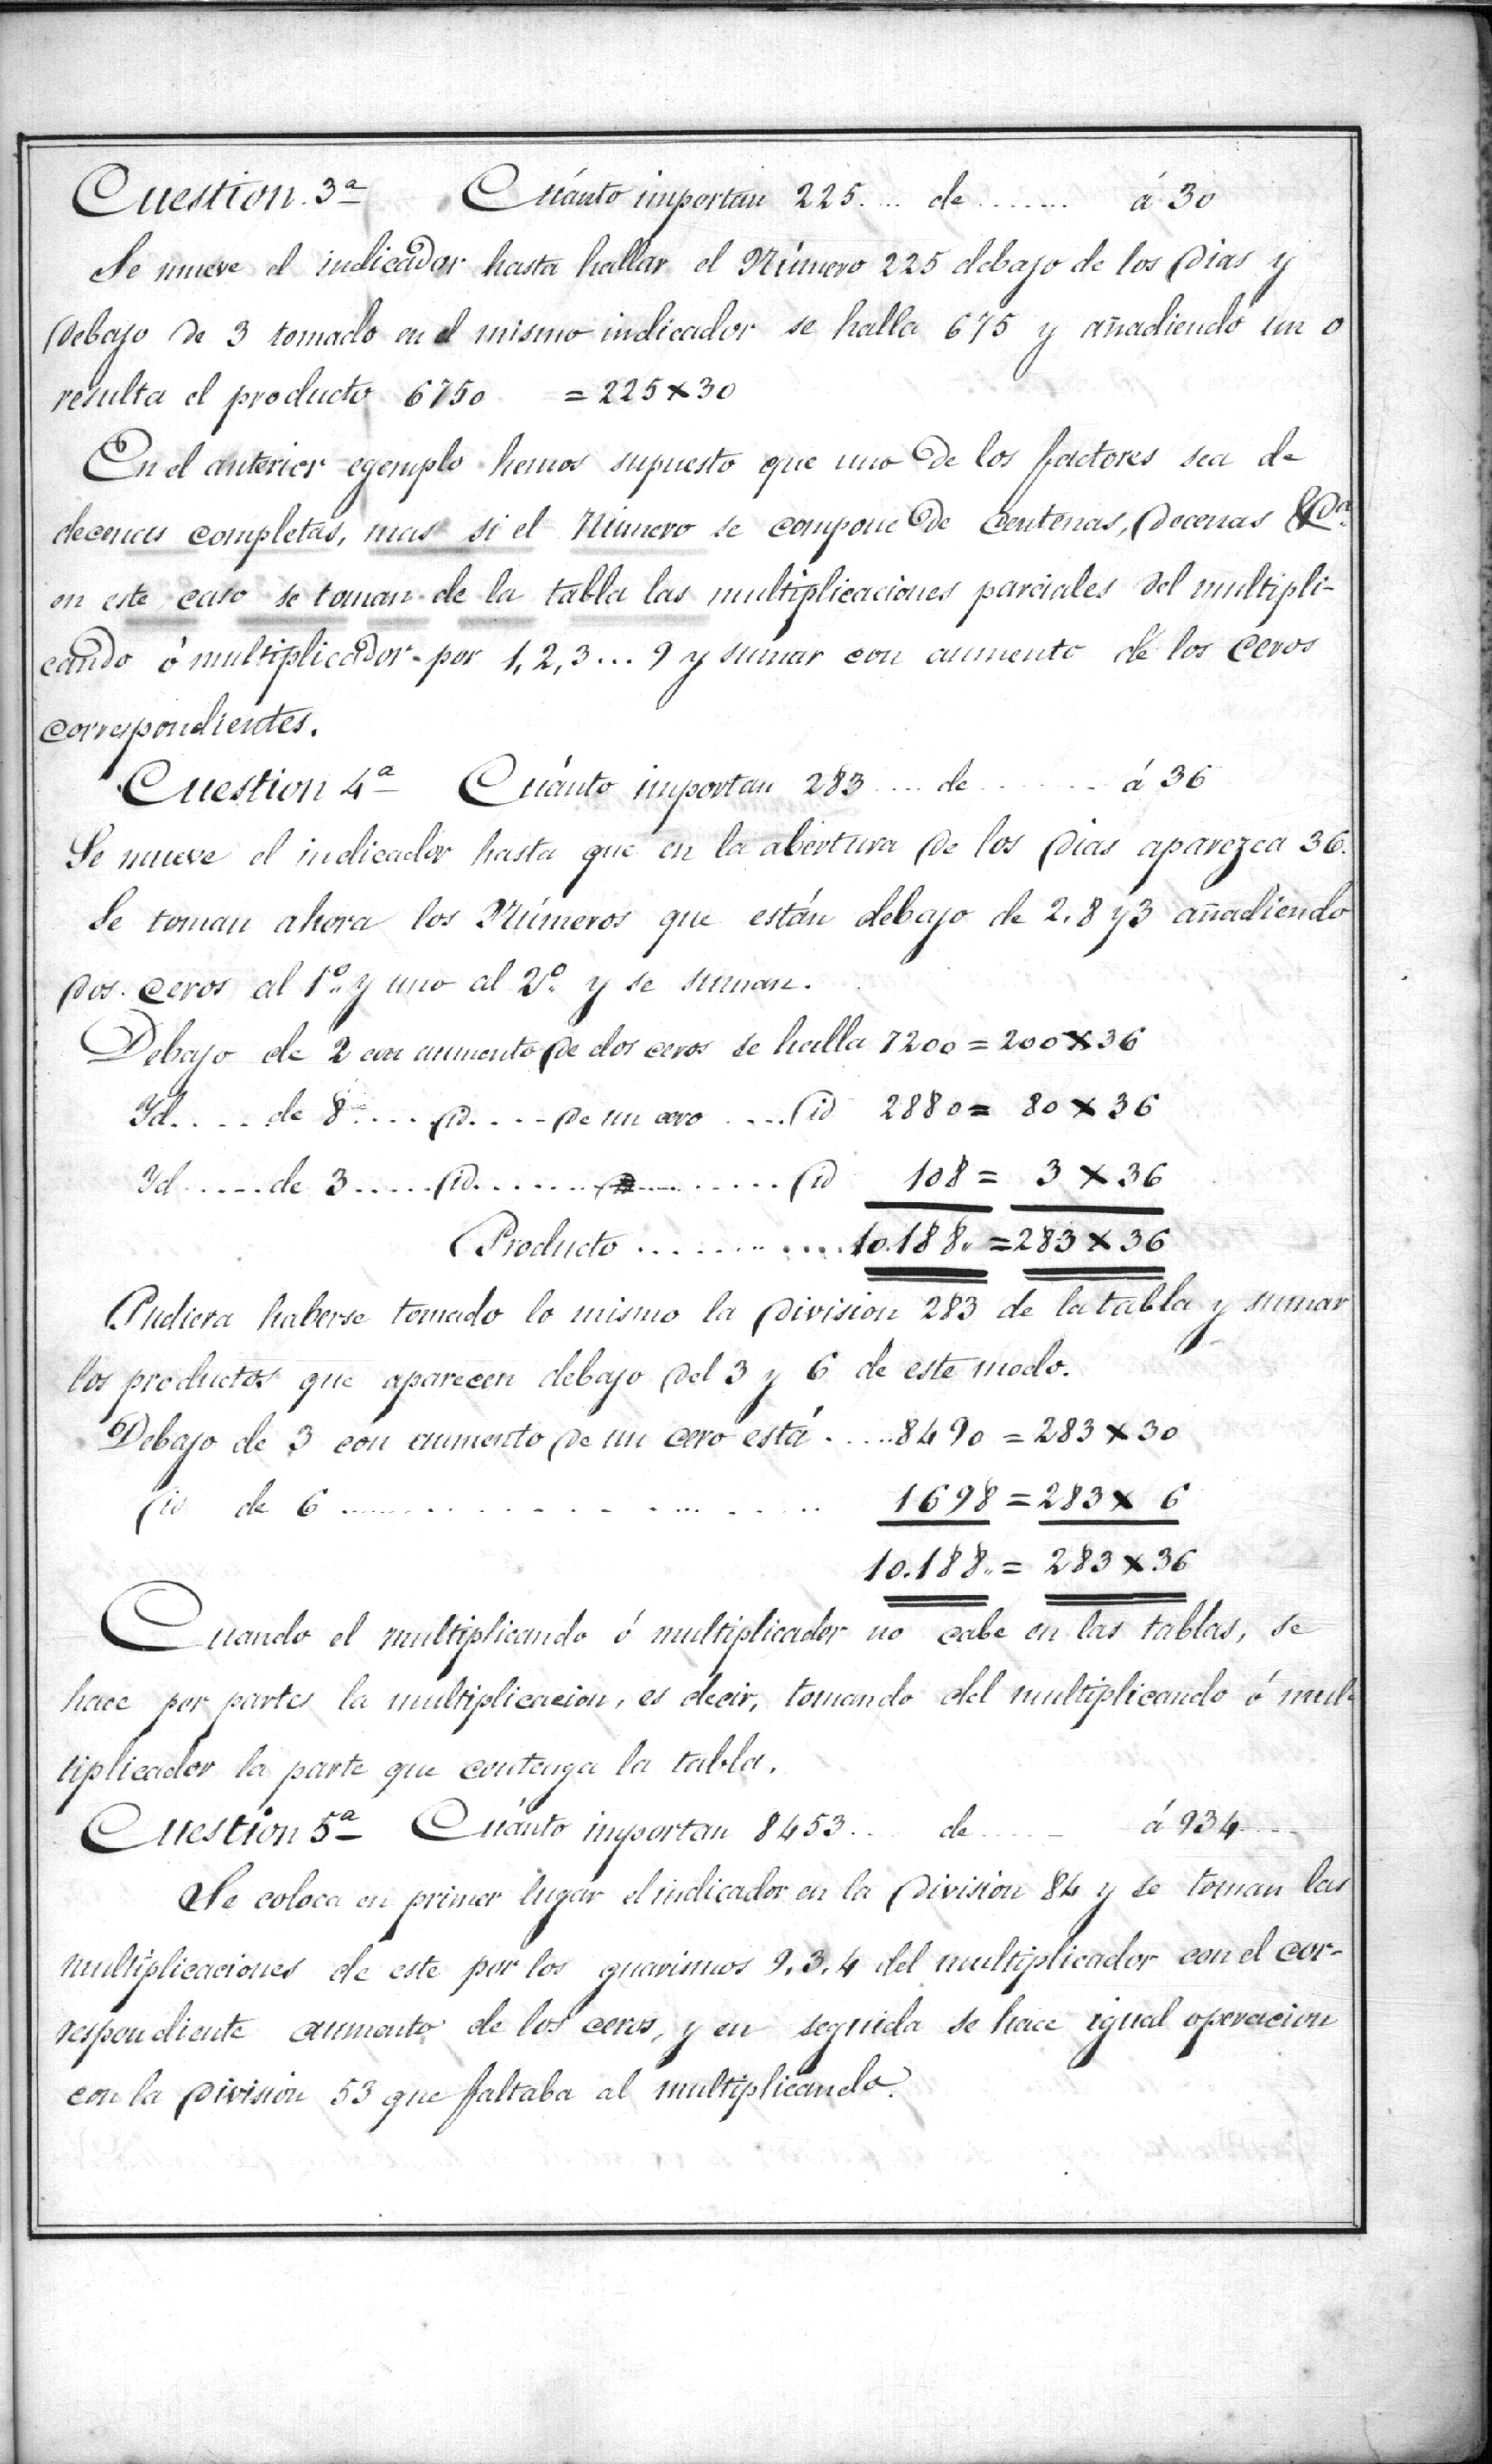 Cuestion 3ª Cuánto importan 225.... de ....... á 30
Se mueve el indicador hasta hallar el Número 225 debajo de los Dias y
debajo de 3 tomado en el mismo indicador se halla 675 y añadiendo un 0
resulta el producto 6750 = 225 x 30
En el anterior egemplo hemos supuesto que uno de los factores sea de
decenas completas, mas si el Número se compone de Centenas, Decenas &ª
en este caso se toman de la tabla las multiplicaciones parciales del multipli-
cando ó multiplicador por 1, 2, 3... 9 y sumar con aumento de los ceros
correspondientes.
Cuestion 4ª Cuánto importan 283 .... de ........ á 36
Se mueve el indicador hasta que en la abertura de los Dias aparezca 36.
Se toman ahora los Números que están debajo de 2. 8 y 3 añadiendo
dos ceros al 1º y uno al 2º y se suman.
Debajo de 2 con aumento de dos ceros se halla 7200 = 200 x 36
Yd..... de 8..... id..... de un cero .... id 2880 = 80 x 36
Yd...... de 3..... id.................. id 108 = 3 x 36
Producto ............ 10.188. = 283 x 36
Pudiera haberse tomado lo mismo la Division 283 de la tabla y sumar
los productos que aparecen debajo del 3 y 6 de este modo.
Debajo de 3 con aumento de un cero está ..... 8490 = 283 x 30
id de 6 .................... 1698 = 283 x 6
10.188. = 283 x 36
Cuando el multiplicando ó multiplicador no cabe en las tablas, se
hace por partes la multiplicacion, es decir, tomando del multiplicando ó mul-
tiplicador la parte que contenga la tabla.
Cuestion 5ª Cuánto importan 8453.... de ...... á 934....
Se coloca en primer lugar el indicador en la Division 84 y se toman las
multiplicaciones de este por los guarismos 9. 3. 4 del multiplicador con el cor-
respondiente aumento de los ceros, y en seguida se hace igual operacion
con la Division 53 que faltaba al multiplicando.